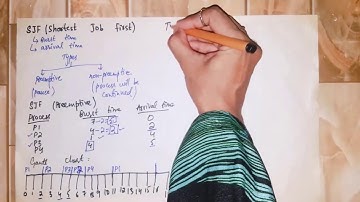 SJF (Shortest Job first)
↳ Burst time
↳ arrival time
Types
Preemptive
(pause)
non-preemptive
(process will be continued)
SJF (Preemptive)
Process Burst time Arrival time
P1 7 0
P2 4 2
P3 4
P4 4 5
Gantt chart:
P1 P2 P3 P2 P4 P1
0 1 2 3 4 5 6 7 8 9 10 11 12 13 14 15 16